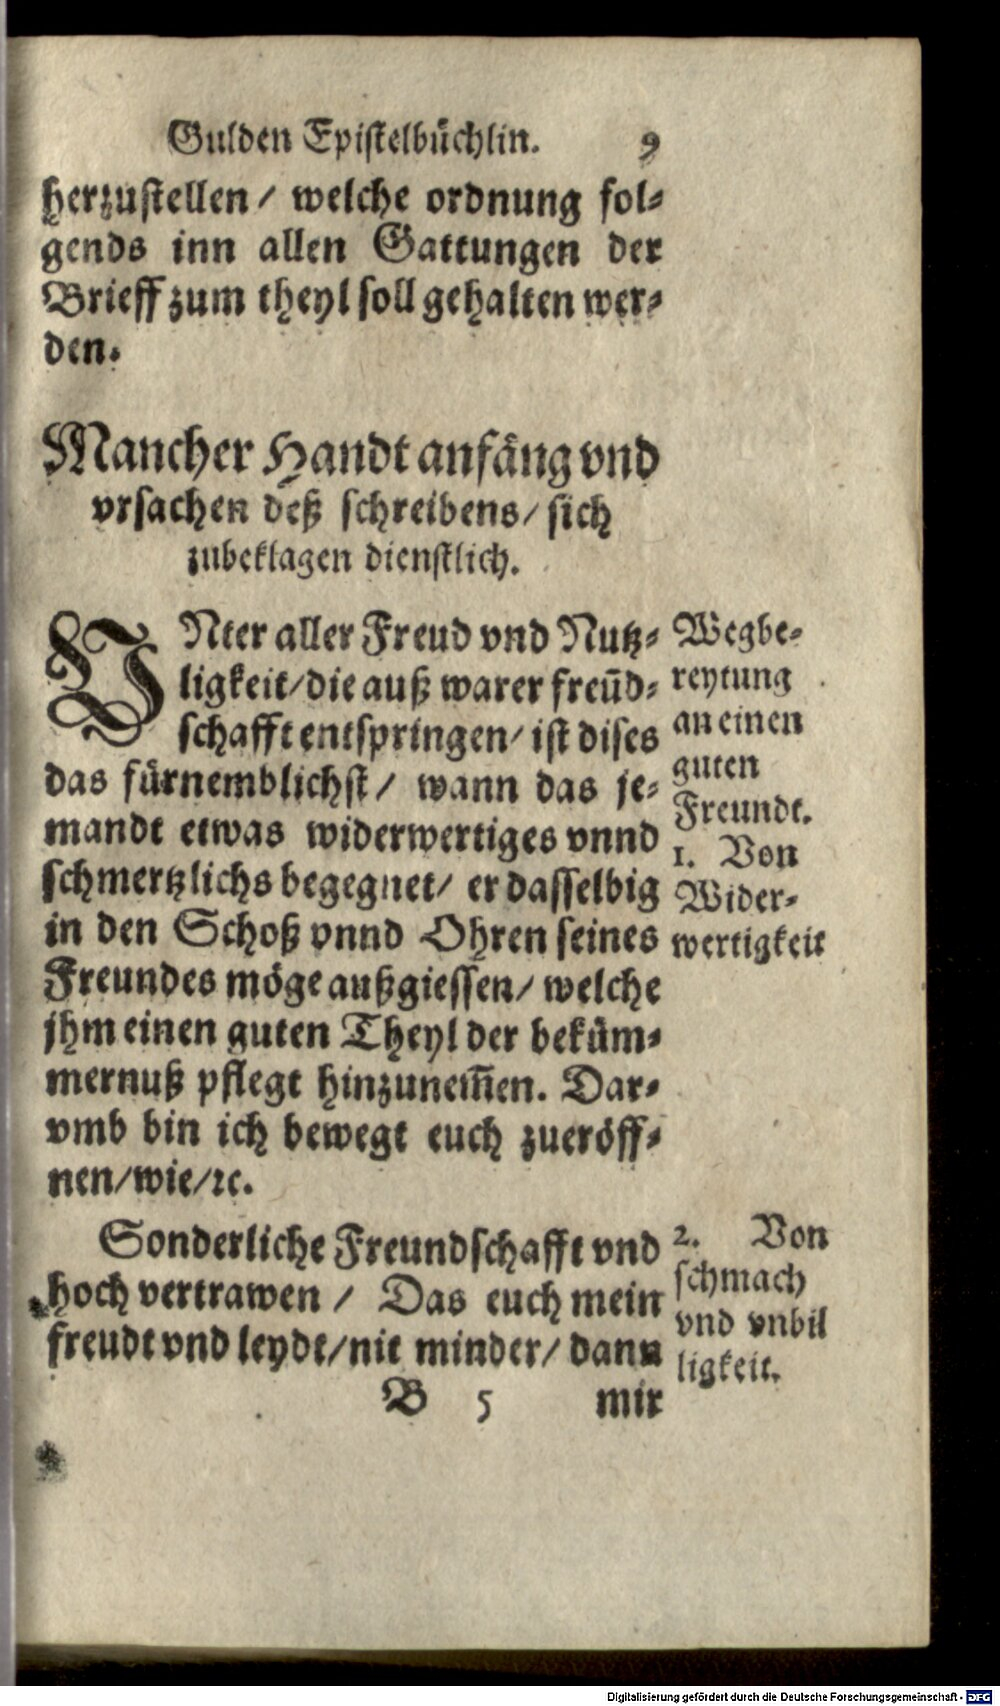 Gulden Epistelbüchlin. 9
herzustellen / welche ordnung fol⸗
gends inn allen Gattungen der
Brieff zum theyl soll gehalten wer⸗
den.
Mancher Handt anfäng vnd
vrsachen deß schreibens / sich
zubeklagen dienstlich.
VNter aller Freud vnd Nutz⸗
ligkeit / die auß warer freūd⸗
schafft entspringen / ist dises
das fürnemblichst / wann das je⸗
mandt etwas widerwertiges vnnd
schmertzlichs begegnet / er dasselbig
in den Schoß vnnd Ohren seines
Freundes möge außgiessen / welche
jhm einen guten Theyl der beküm⸗
mernuß pflegt hinzunem̄en. Dar⸗
vmb bin ich bewegt euch zueröff⸗
nen / wie / ꝛc.
Wegbe⸗
reytung
an einen
guten
Freundt.
1. Von
Wider⸗
wertigkeit
Sonderliche Freundschafft vnd
hoch vertrawen / Das euch mein
freudt vnd leydt / nit minder / dann
2. Von
schmach
vnd vnbil
ligkeit.
B 5 mir
Digitalisierung gefördert durch die Deutsche Forschungsgemeinschaft - DFG